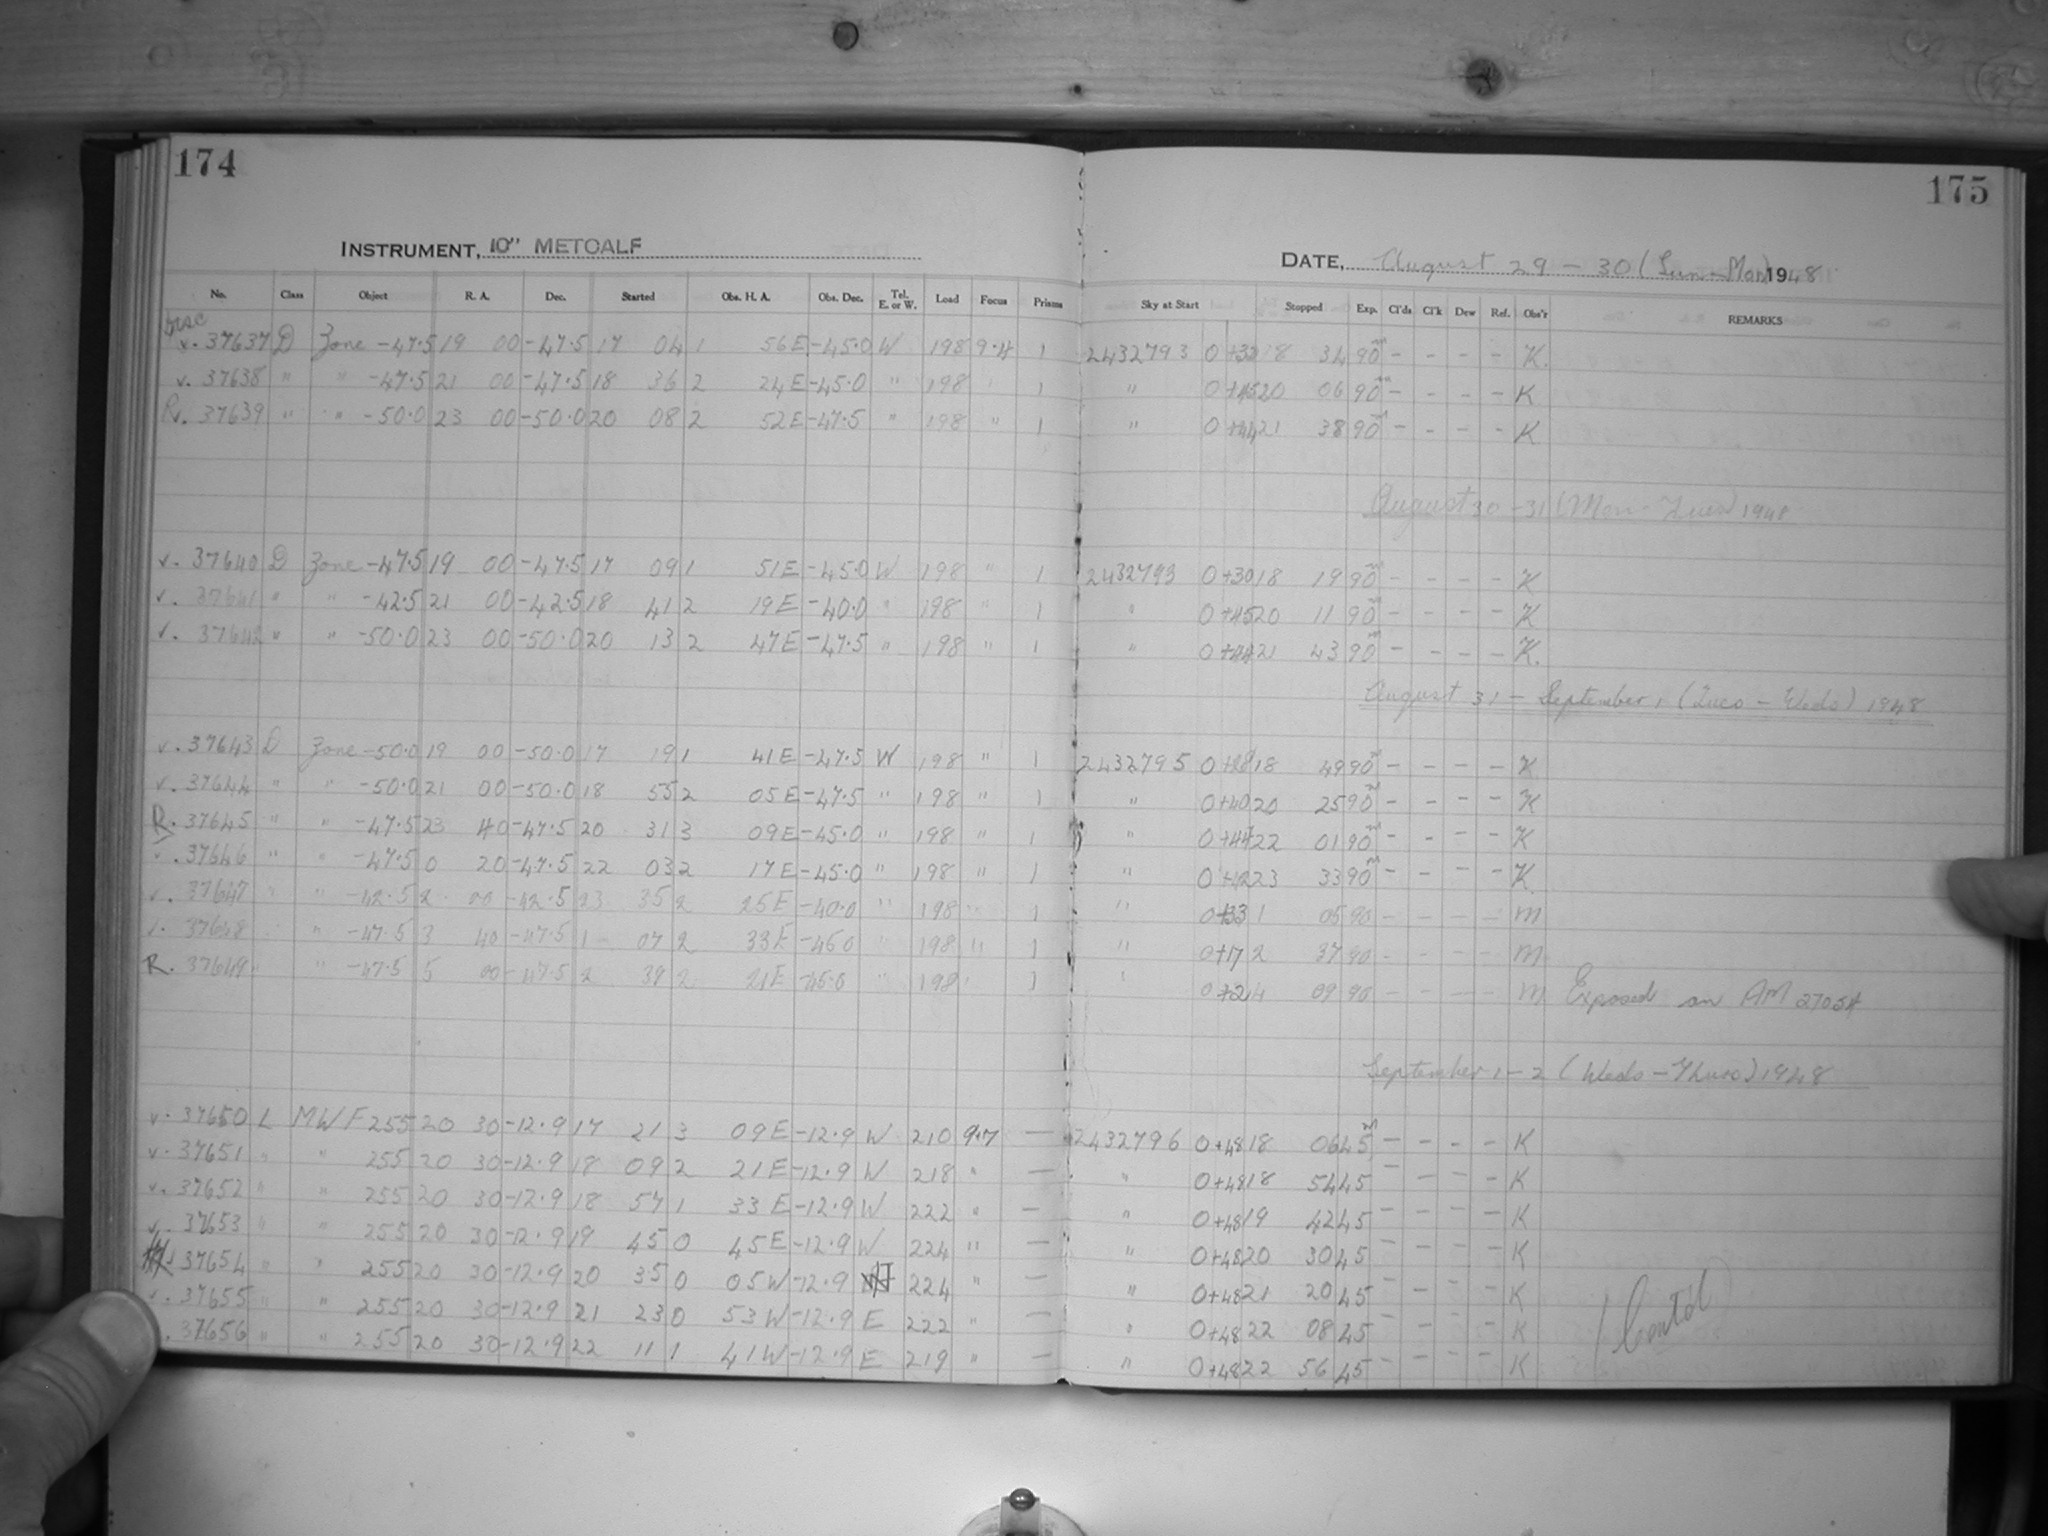 174
175
INSTRUMENT, 10" METCALF
DATE, August 29 - 30 (Sun - Mon) 1948
No. Class Object R. A. Dec. Started Obs. H. A. Obs. Dec. Tel. E. or W. Load Focus Prisms Sky at Start Stopped Exp. Cl'ds Cl'k Dew Ref. Obs'r REMARKS
v. 37637 D Zone -47.5 19 00 -47.5 17 04 1 56 E -45.0 W 198 9.4 1 2432793 0+32 18 34 90m - - - - K.
v. 37638 " " -47.5 21 00 -47.5 18 36 2 24 E -45.0 " 198 1 " 0+45 20 06 90m - - - - K
R. 37639 " " -50.0 23 00 -50.0 20 08 2 52 E -47.5 " 198 " 1 " 0+44 21 38 90m - - - - K
August 30 - 31 (Mon - Tues) 1948
v. 37640 D Zone -47.5 19 00 -47.5 17 09 1 51 E -45.0 W 198 " 1 2432793 0+30 18 19 90m - - - - K
v. 37641 " " -42.5 21 00 -42.5 18 41 2 19 E -40.0 " 198 " 1 " 0+45 20 11 90m - - - - K
v. 37642 " " -50.0 23 00 -50.0 20 13 2 47 E -47.5 " 198 " 1 " 0+44 21 43 90m - - - - K.
August 31 - September 1 (Tues - Weds) 1948
v. 37643 D Zone -50.0 19 00 -50.0 17 19 1 41 E -47.5 W 198 " 1 2432795 0+28 18 49 90m - - - - K
v. 37644 " " -50.0 21 00 -50.0 18 55 2 05 E -47.5 " 198 " 1 " 0+40 20 25 90m - - - - K
R. 37645 " " -47.5 23 40 -47.5 20 31 3 09 E -45.0 " 198 " 1 " 0+44 22 01 90m - - - - K
v. 37646 " " -47.5 0 20 -47.5 22 03 2 17 E -45.0 " 198 " 1 " 0+42 23 33 90m - - - - K
v. 37647 " " -42.5 2 00 -42.5 23 35 2 25 E -40.0 " 198 " 1 " 0+33 1 05 90 - - - - M
v. 37648 " " -47.5 3 40 -47.5 1 07 2 33 E -45.0 " 198 " 1 " 0+17 2 37 90 - - - - M
R. 37649 " " -47.5 5 00 -47.5 2 39 2 21 E -45.0 " 198 " 1 " 0+2 4 09 90 - - - - M Exposed on AM 27054
September 1 - 2 (Weds - Thurs) 1948
v. 37650 L MWF 255 20 30 -12.9 17 21 3 09 E -12.9 W 210 9.7 — 2432796 0+48 18 06 45m - - - - K
v. 37651 " " 255 20 30 -12.9 18 09 2 21 E -12.9 W 218 " — " 0+48 18 54 45 - - - - K
v. 37652 " " 255 20 30 -12.9 18 57 1 33 E -12.9 W 222 " — " 0+48 19 42 45 - - - - K
v. 37653 " " 255 20 30 -12.9 19 45 0 45 E -12.9 W 224 " — " 0+48 20 30 45 - - - - K
37654 " " 255 20 30 -12.9 20 35 0 05 W -12.9 224 " — " 0+48 21 20 45 - - - - K
v. 37655 " " 255 20 30 -12.9 21 23 0 53 W -12.9 E 222 " — " 0+48 22 08 45 - - - - K
. 37656 " " 255 20 30 -12.9 22 11 1 41 W -12.9 E 219 " — " 0+48 22 56 45 - - - - K
(Contd)